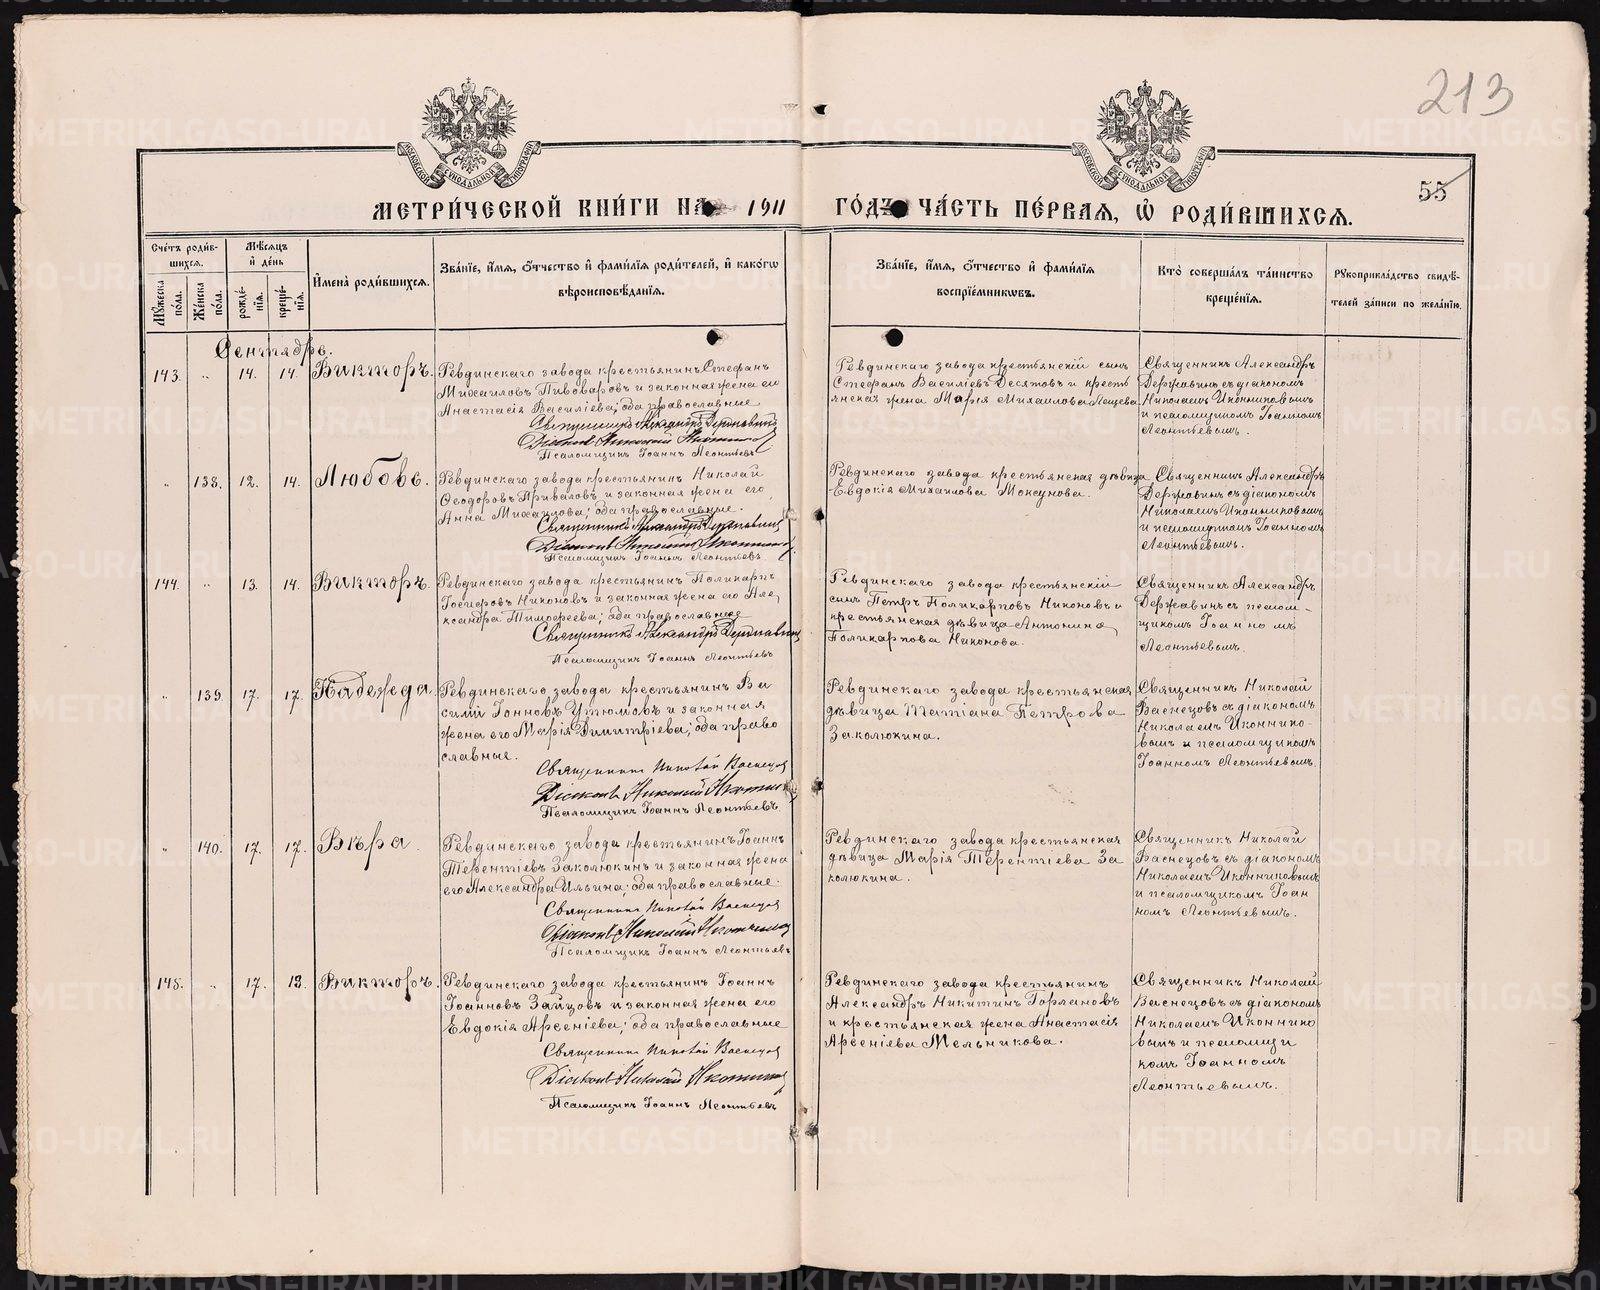 213
55
МОСКОВСКОЙ СѴНОДАЛЬНОЙ ТИПОГРАФІИ
МОСКОВСКОЙ СѴНОДАЛЬНОЙ ТИПОГРАФІИ
МЕТРИ́ЧЕСКОЙ КНИ́ГИ НА 1911 ГО́ДЪ ЧА́СТЬ ПЕ́РВАЯ, Ѽ РОДИ́ВШИХСЯ.
Сче́тъ роди́в-
шихся.
Мꙋжеска по́ла.
Же́нска по́ла.
Мѣ́сяцъ и҆ де́нь
рожде́-нїѧ.
креще́-нїѧ.
И҆мена̀ роди́вшихся.
Зва́нїе, и҆́мя, ѻ҆́тчество и҆ фами́лїя роди́телей, и҆ како́гѡ
вѣроисповѣ́данїя.
Зва́нїе, и҆́мя, ѻ҆́тчество и҆ фами́лїя
воспрїе́мникѡвъ.
Кто̀ соверша́лъ та́инство
креще́нїя.
Рꙋкоприкла́дство свидѣ́-
телей за́писи по жела́нїю.
Сентябрь.
143. " 14. 14. Викторъ.
Ревдинскаго завода крестьянинъ Стефанъ
Михаиловъ Пивоваровъ и законная жена его
Анастасія Василіева; оба православные
Священникъ Александръ Державинъ
Діаконъ Николай Иконниковъ
Псаломщикъ Іоаннъ Леонтьевъ
Ревдинскаго завода крестьянскій сынъ
Стефанъ Василіевъ Десятовъ и кресть
янская жена Марія Михаилова Лещева
Священникъ Александръ
Державинъ съ діакономъ
Николаемъ Иконниковымъ
и псаломщикомъ Іоанномъ
Леонтьевымъ.
" 138. 12. 14. Любовь.
Ревдинскаго завода крестьянинъ Николай
Ѳеодоровъ Приваловъ и законная жена его
Анна Михаилова; оба православные.
Священникъ Александръ Державинъ
Діаконъ Николай Иконниковъ
Псаломщикъ Іоаннъ Леонтьевъ
Ревдинскаго завода крестьянская дѣвица
Евдокія Михаилова Мокеунова.
Священникъ Александръ
Державинъ съ діакономъ
Николаемъ Иконниковымъ
и псаломщикомъ Іоанномъ
Леонтьевымъ.
144. " 13. 14. Викторъ.
Ревдинскаго завода крестьянинъ Поликарпъ
Никоновъ и законная жена его Але
ксандра Тимоѳеева; оба православные
Священникъ Александръ Державинъ
Псаломщикъ Іоаннъ Леонтьевъ
Ревдинскаго завода крестьянскій
сынъ Петръ Поликарповъ Никоновъ и
крестьянская дѣвица Антонина
Поликарпова Никонова.
Священникъ Александръ
Державинъ съ псалом-
щикомъ Іоанномъ
Леонтьевымъ.
" 139. 17. 17. Надежда.
Ревдинскаго завода крестьянинъ Ва
силій Іонновъ Утюмовъ и законная
жена его Марія Димитріева; оба право
славные.
Священникъ Николай Васнецовъ
Діаконъ Николай Иконниковъ
Псаломщикъ Іоаннъ Леонтьевъ
Ревдинскаго завода крестьянская
дѣвица Татіана Петрова
Заколюкина.
Священникъ Николай
Васнецовъ съ діакономъ
Николаемъ Иконнико-
вымъ и псаломщикомъ
Іоанномъ Леонтьевымъ.
" 140. 17. 17. Вѣра.
Ревдинскаго завода крестьянинъ Іоаннъ
Терентіевъ Заколюкинъ и законная жена
его Александра Ильина; оба православные.
Священникъ Николай Васнецовъ
Діаконъ Николай Иконниковъ
Псаломщикъ Іоаннъ Леонтьевъ
Ревдинскаго завода крестьянская
дѣвица Марія Терентіева За
колюкина.
Священникъ Николай
Васнецовъ съ діакономъ
Николаемъ Иконниковымъ
и псаломщикомъ Іоан
номъ Леонтьевымъ.
145. " 17. 18. Викторъ.
Ревдинскаго завода крестьянинъ Іоаннъ
Іоанновъ Зайцовъ и законная жена его
Евдокія Арсеніева; оба православные
Священникъ Николай Васнецовъ
Діаконъ Николай Иконниковъ
Псаломщикъ Іоаннъ Леонтьевъ
Ревдинскаго завода крестьянинъ
Александръ Никитинъ Горлановъ
и крестьянская жена Анастасія
Арсеніева Мельникова.
Священникъ Николай
Васнецовъ съ діакономъ
Николаемъ Иконнико
вымъ и псаломщи
комъ Іоанномъ
Леонтьевымъ.
METRIKI.GASO-URAL.RU